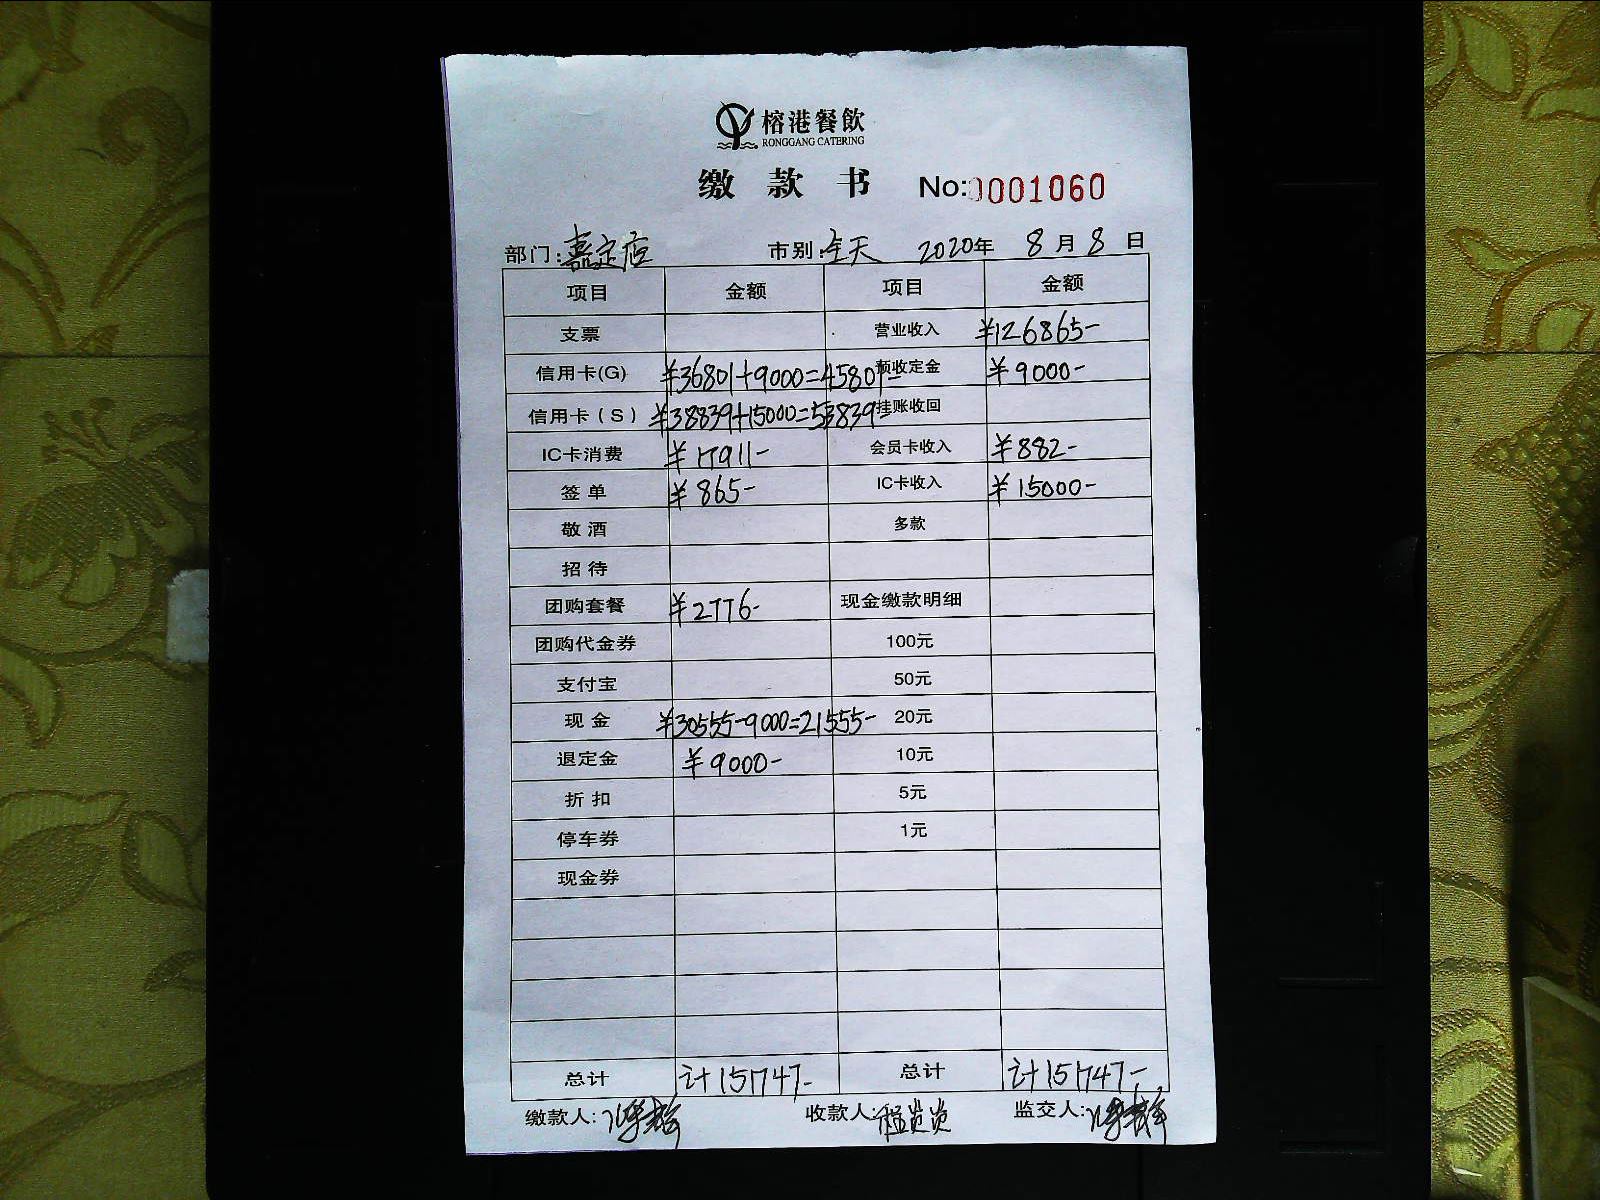 榕港餐飲
RONGGANG CATERING
缴款书 No:0001060
部门:嘉定店 市别:全天 2020年8月8日
项目 金额 项目 金额
支票 营业收入 ¥126865-
信用卡(G) ¥36801+9000=45801- 预收定金 ¥9000-
信用卡(S) ¥38839+15000=53839- 挂账收回
IC卡消费 ¥17911- 会员卡收入 ¥882-
签单 ¥865- IC卡收入 ¥15000-
敬酒 多款
招待
团购套餐 ¥2776- 现金缴款明细
团购代金券 100元
支付宝 50元
现金 ¥30555-9000=21555- 20元
退定金 ¥9000- 10元
折扣 5元
停车券 1元
现金券
总计 计151747- 总计 计151747-
缴款人: 收款人: 监交人: